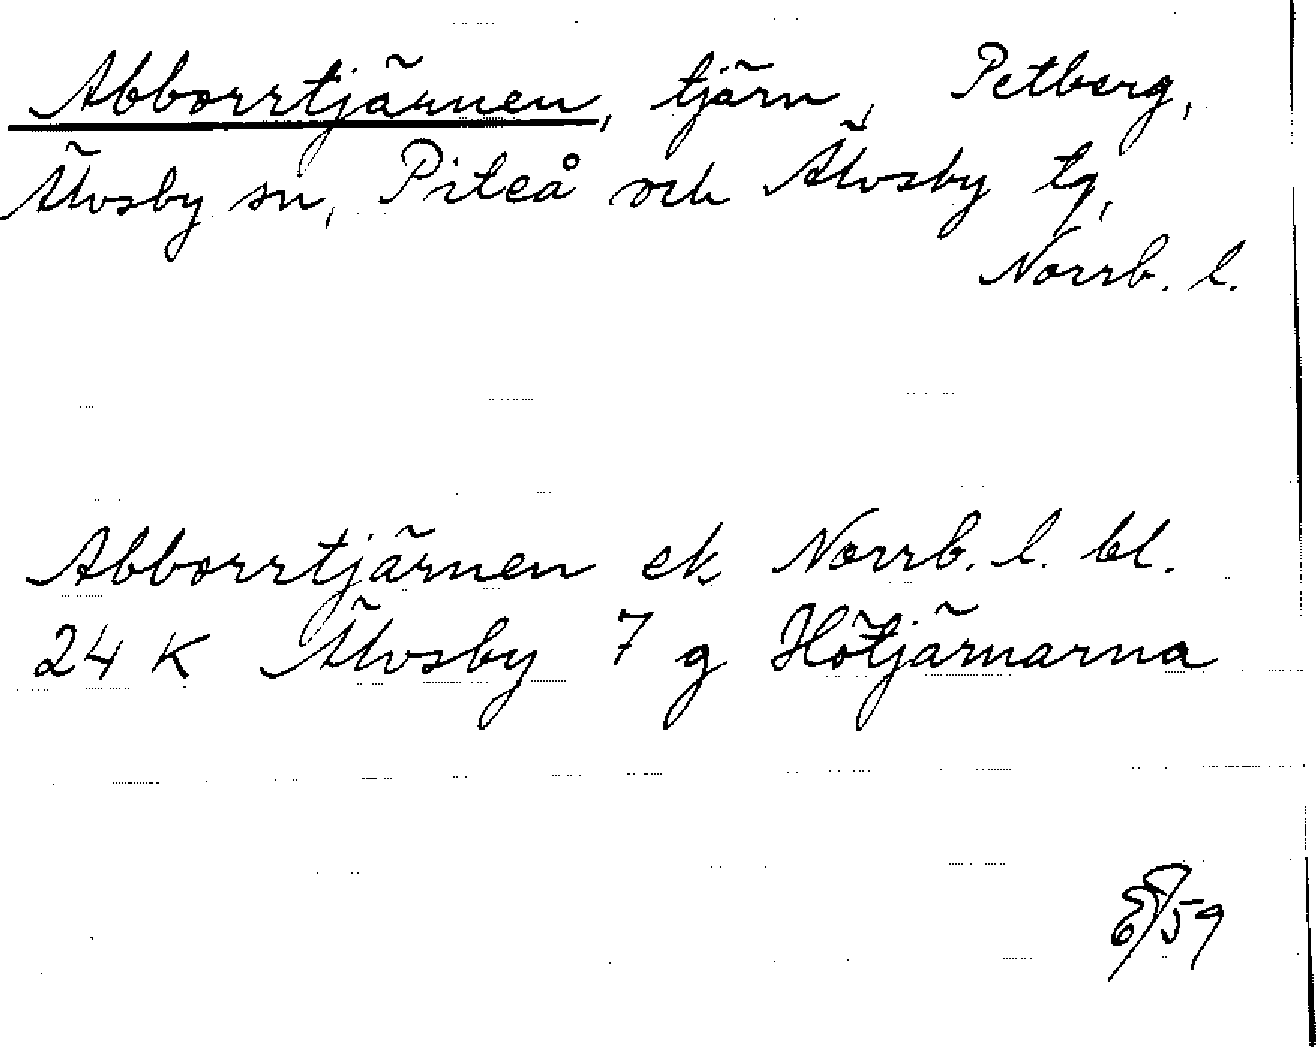 Abborrtjärnen, tjärn, Petberg,
Älvsby sn, Piteå och Älvsby tg,
Norrb. l.
Abborrtjärnen ek Norrb. l. bl.
24 K Älvsby 7 g Hötjärnarna
59